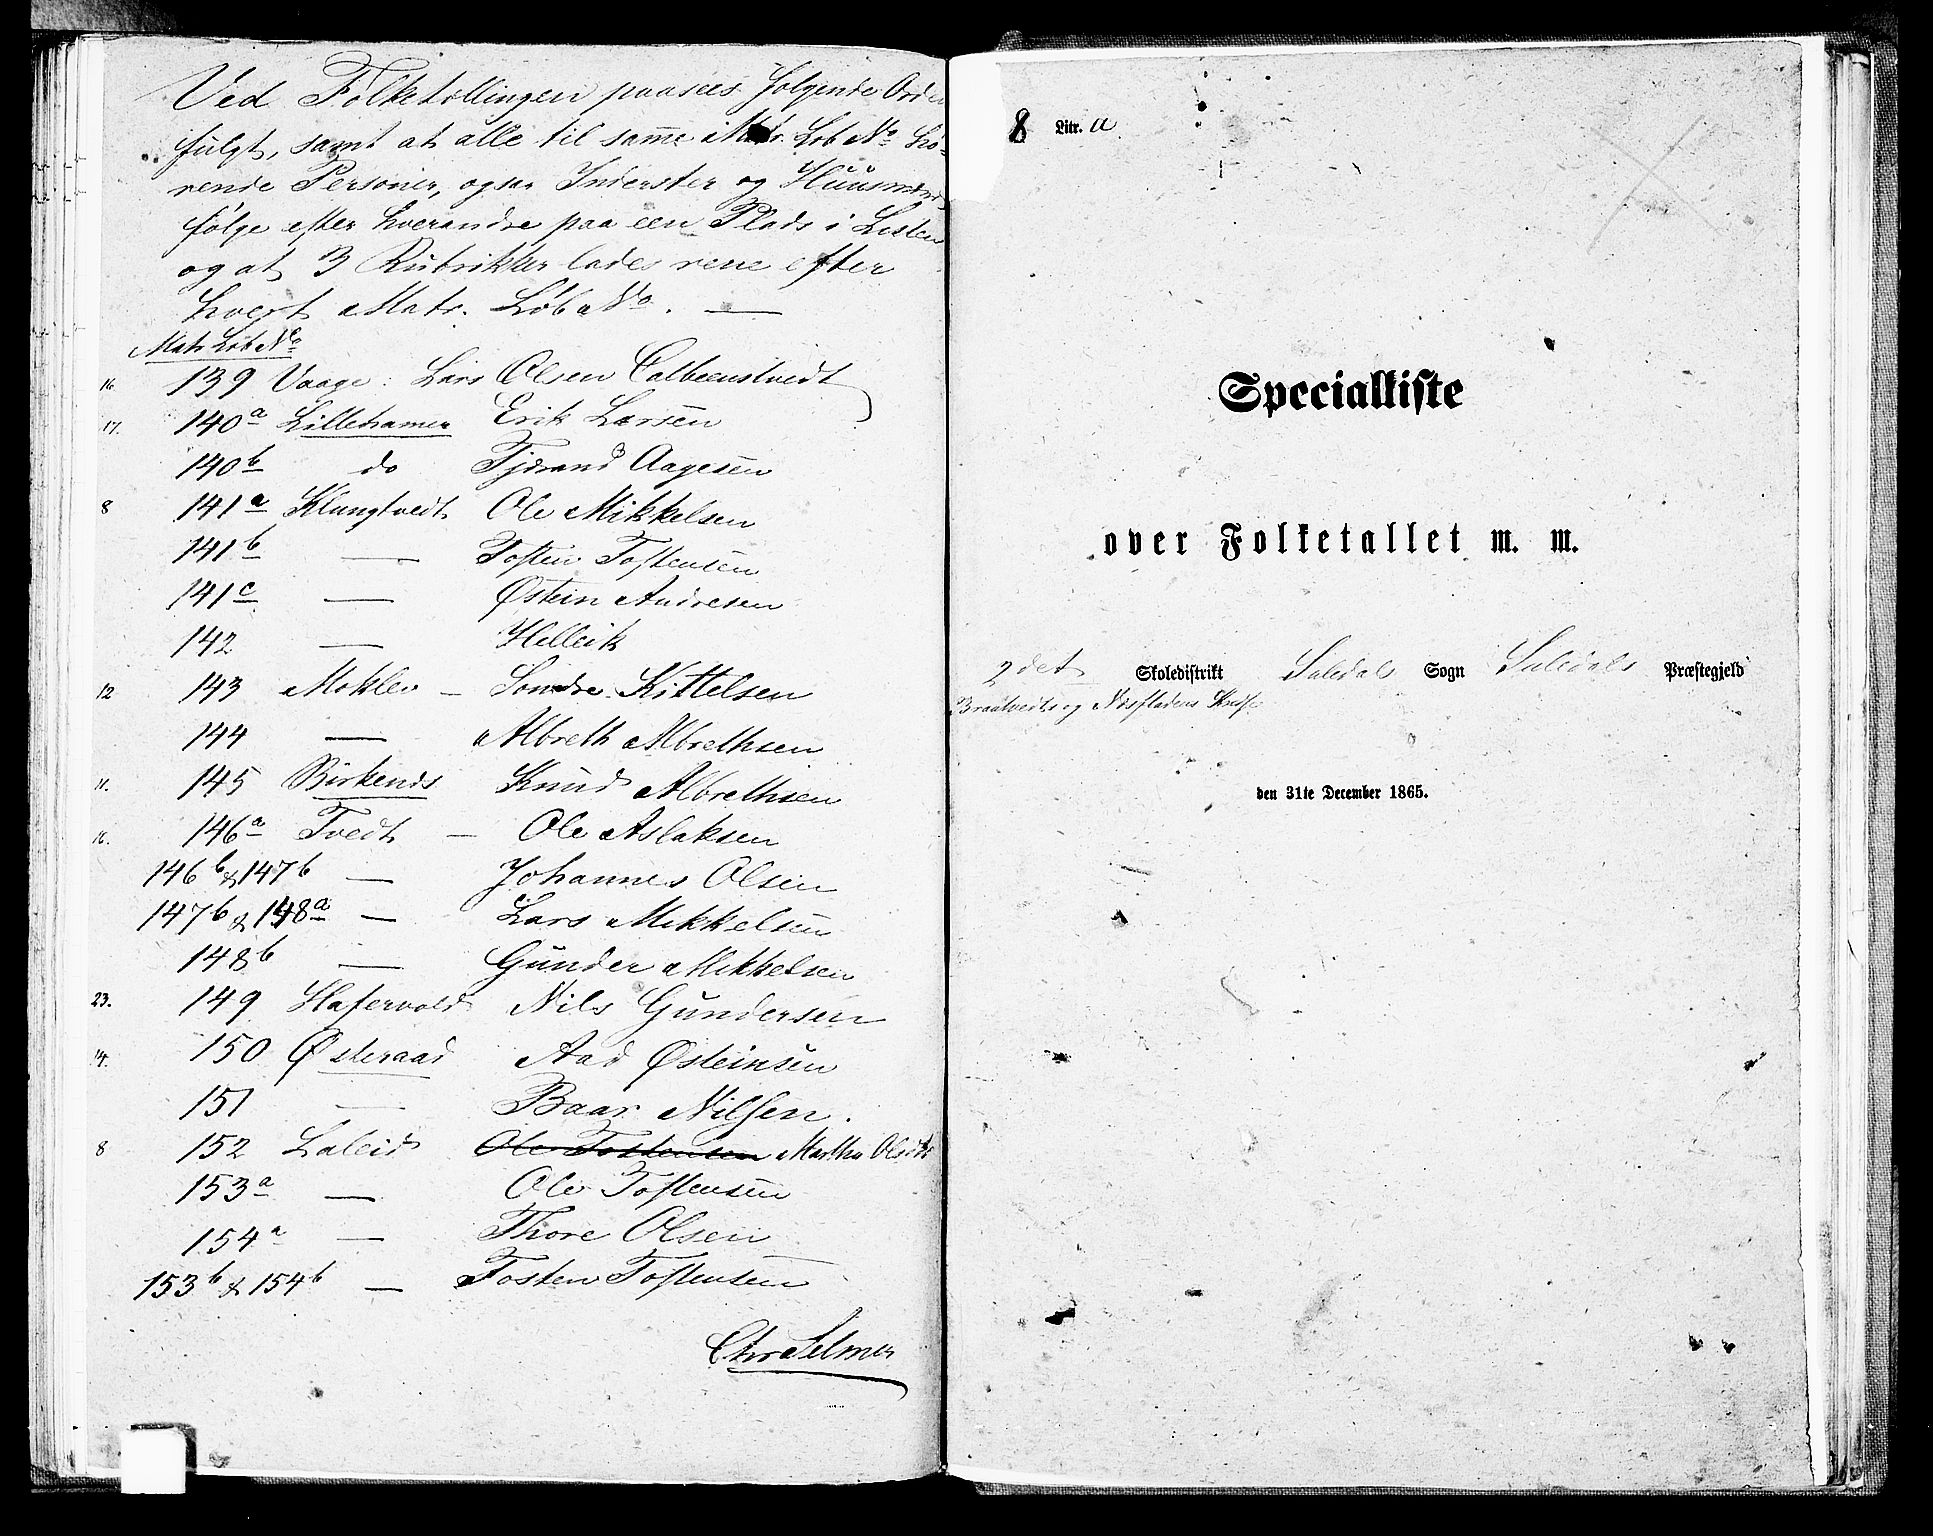 Ved Folketællingen paasees følgende Orden
fulgt, samt at alle til samme Matr. Løb No hø-
rende Personer, ogsaa Inderster og Huusmænd
følge efter hverandre paa een Plads i Listen
og at 3 Rubrikker lades rene efter
hvert Matr. Løb No. —
Matr Løb No
16. 139 Vaage: Lars Olsen Calbeenstvedt
17. 140a Lillehamer Erik Larsen
140b do Tjerand Aagesen
8 141a Klungtvedt Ole Mikkelsen
141b — Tosten Tostensen
141c — Østein Andresen
142 — Helleik
12 143 Moklev — Sondre Kittelsen
144 — Albreth Albrethsen
11. 145 Birkenes Knud Albrethsen
16. 146a Tvedt — Ole Aslaksen
146b & 147b — Johannes Olsen
147b & 148a — Lars Mikkelsen
148b — Gunder Mikkelsen
23. 149 Hafervold Nils Gundersen
14. 150 Østeraad Aad Østeinsen
151 — Baar Nilsen.
8 152 Laleid Ole Tostensen Martha Olsdtr
153a — Ole Tostensen
154a — Thore Olsen
153b & 154b — Tosten Tostensen
Chr Selmer
8 Litr. a.
Specialliste
over Folketallet m. m.
2det Skoledistrikt Suledal Sogn Suledals Præstegjeld
Braatveits og Næsfladens Kreds
den 31te December 1865.